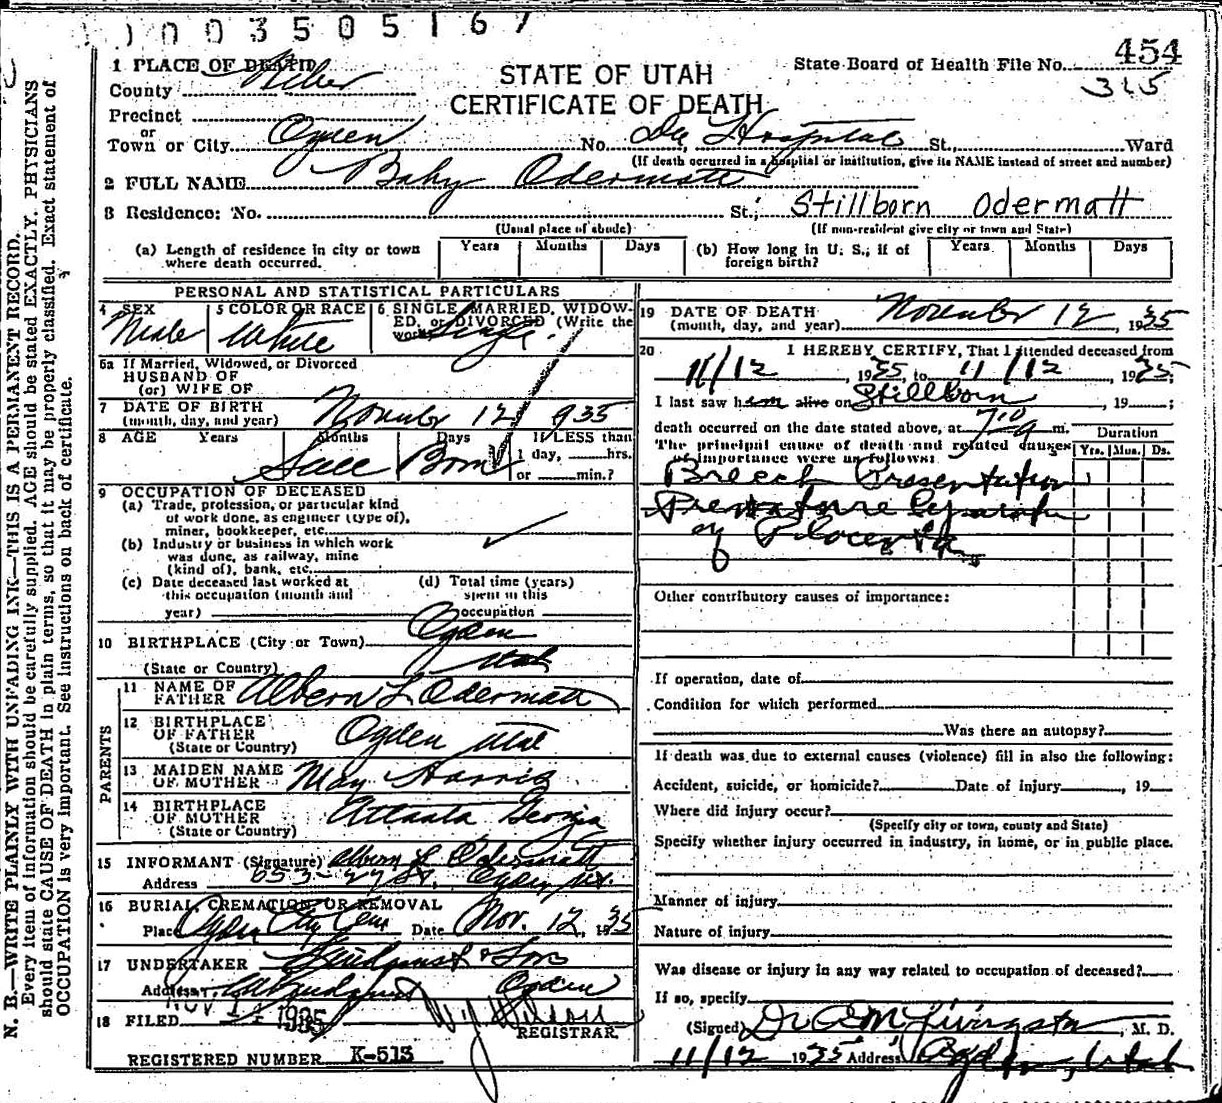 1003505167
454
1 PLACE OF DEATH
STATE OF UTAH
State Board of Health File No.
315
County Weber
CERTIFICATE OF DEATH
Precinct
or
Town or City Ogden No. Dee Hospital St., Ward
(If death occurred in a hospital or institution, give its NAME instead of street and number)
2 FULL NAME Baby Odermatt
3 Residence: No. St., Stillborn Odermatt
(Usual place of abode) (If non-resident give city or town and State)
(a) Length of residence in city or town where death occurred. Years Months Days (b) How long in U. S., if of foreign birth? Years Months Days
PERSONAL AND STATISTICAL PARTICULARS
4 SEX Male 5 COLOR OR RACE White 6 SINGLE, MARRIED, WIDOWED, or DIVORCED (Write the word) Single
6a If Married, Widowed, or Divorced
HUSBAND OF
(or) WIFE OF
7 DATE OF BIRTH
(month, day, and year) November 12 1935
8 AGE Years Months Days If LESS than
1 day, hrs.
or min.?
Born
9 OCCUPATION OF DECEASED
(a) Trade, profession, or particular kind
of work done, as engineer (type of),
miner, bookkeeper, etc.
(b) Industry or business in which work
was done, as railway, mine
(kind of), bank, etc.
(c) Date deceased last worked at
this occupation (month and
year)
(d) Total time (years)
spent in this
occupation
10 BIRTHPLACE (City or Town) Ogden
(State or Country) Utah
PARENTS
11 NAME OF FATHER Albern L Odermatt
12 BIRTHPLACE OF FATHER
(State or Country) Ogden Utah
13 MAIDEN NAME OF MOTHER May Harris
14 BIRTHPLACE OF MOTHER
(State or Country) Atlanta Georgia
15 INFORMANT (Signature) Albern L Odermatt
Address 653-27 St. Ogden Ut.
16 BURIAL, CREMATION, OR REMOVAL
Place Ogden City Cem Date Nov. 12, 1935
17 UNDERTAKER Lindquist & Sons
Address Ogden
18 FILED NOV 14 1935 REGISTRAR
REGISTERED NUMBER K-513
19 DATE OF DEATH
(month, day, and year) November 12, 1935
20 I HEREBY CERTIFY, That I attended deceased from
11/12, 1935, to 11/12, 1935;
I last saw him alive on Stillborn, 19 ;
death occurred on the date stated above, at m.
The principal cause of death and related causes
of importance were as follows:
Duration
Yrs. Mos. Ds.
Breech Presentation
Premature Separation
of Placenta
Other contributory causes of importance:
If operation, date of
Condition for which performed
Was there an autopsy?
If death was due to external causes (violence) fill in also the following:
Accident, suicide, or homicide? Date of injury , 19
Where did injury occur?
(Specify city or town, county and State)
Specify whether injury occurred in industry, in home, or in public place.
Manner of injury
Nature of injury
Was disease or injury in any way related to occupation of deceased?
If so, specify
(Signed) Dr. Livingston, M. D.
11/12 1935 Address Ogden, Utah
N. B.—WRITE PLAINLY WITH UNFADING INK—THIS IS A PERMANENT RECORD.
Every item of information should be carefully supplied. AGE should be stated EXACTLY. PHYSICIANS
should state CAUSE OF DEATH in plain terms, so that it may be properly classified. Exact statement of
OCCUPATION is very important. See instructions on back of certificate.